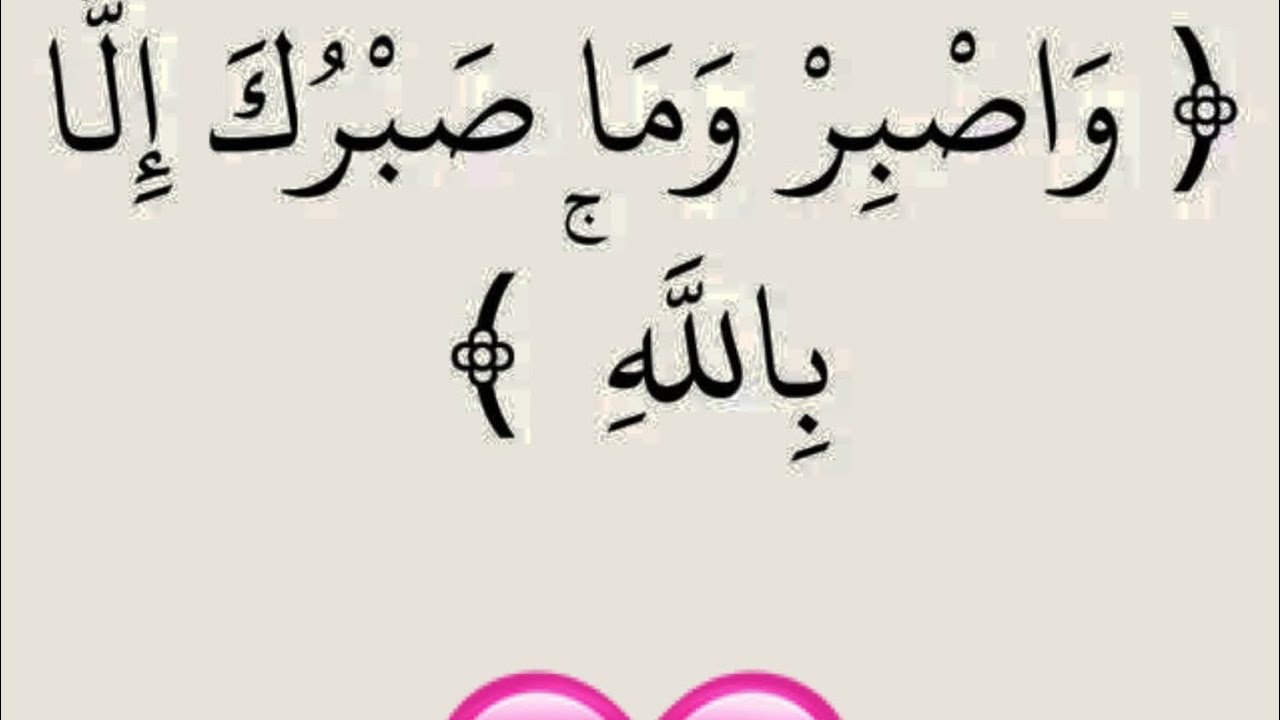 ﴿ وَاصْبِرْ وَمَا صَبْرُكَ إِلَّا
بِاللَّهِ ۚ ﴾